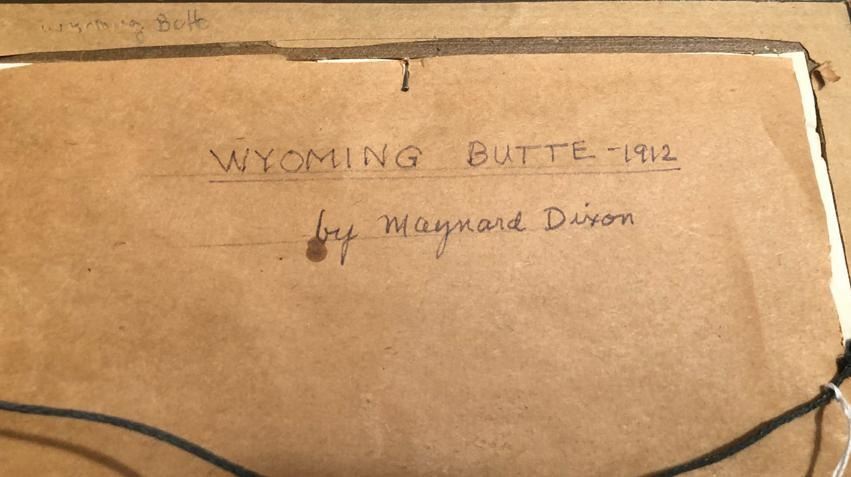 Wyoming Butte
WYOMING BUTTE -1912
by Maynard Dixon